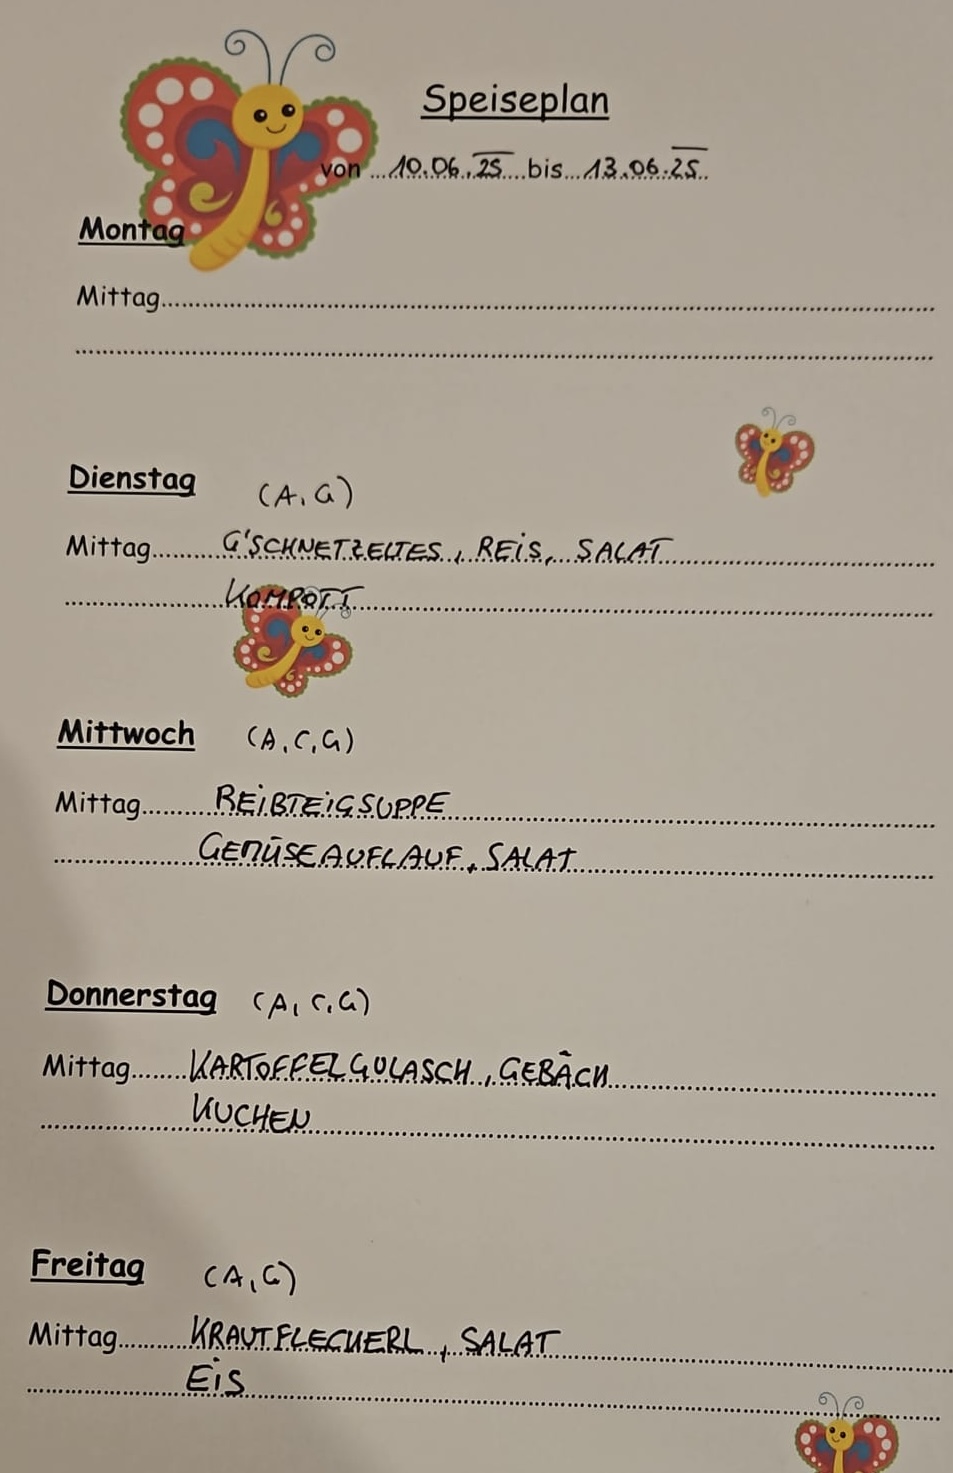 Speiseplan
von ...10.06.25....bis...13.06.25..
Montag
Mittag
Dienstag (A, G)
Mittag G'SCHNETZELTES, REiS, SALAT
KOMPOTT
Mittwoch (A, C, G)
Mittag REiBTEiGSUPPE
GEMÜSEAUFLAUF, SALAT
Donnerstag (A, C, G)
Mittag KARTOFFELGULASCH, GEBÄCK
KUCHEN
Freitag (A, G)
Mittag KRAUTFLECKERL, SALAT
EiS